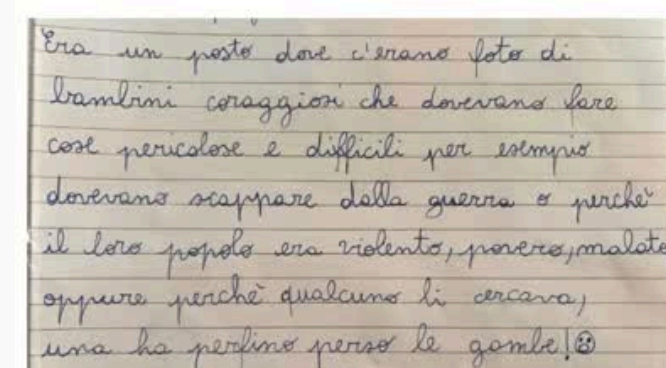 Era un posto dove c'erano foto di
bambini coraggiosi che dovevano fare
cose pericolose e difficili per esempio
dovevano scappare dalla guerra o perchè
il loro popolo era violento, povero, malato
oppure perchè qualcuno li cercava,
una ha perfino perso le gambe!☹